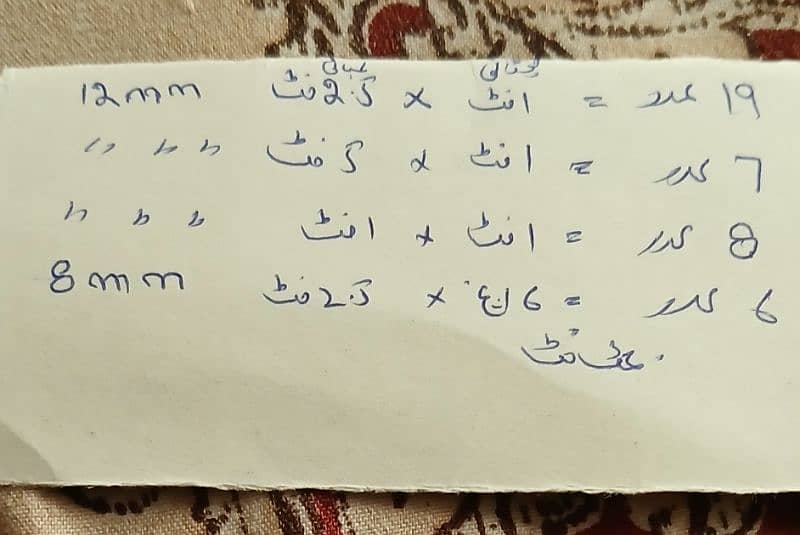 چوڑائی لمبائی
19 عدد = 1 فٹ x 2.5 فٹ 12mm
7 عدد = 1 فٹ x 5 فٹ " " "
8 عدد = 1 فٹ x 1 فٹ " " "
6 عدد = 6 انچ x 2.5 فٹ 8mm
فٹ